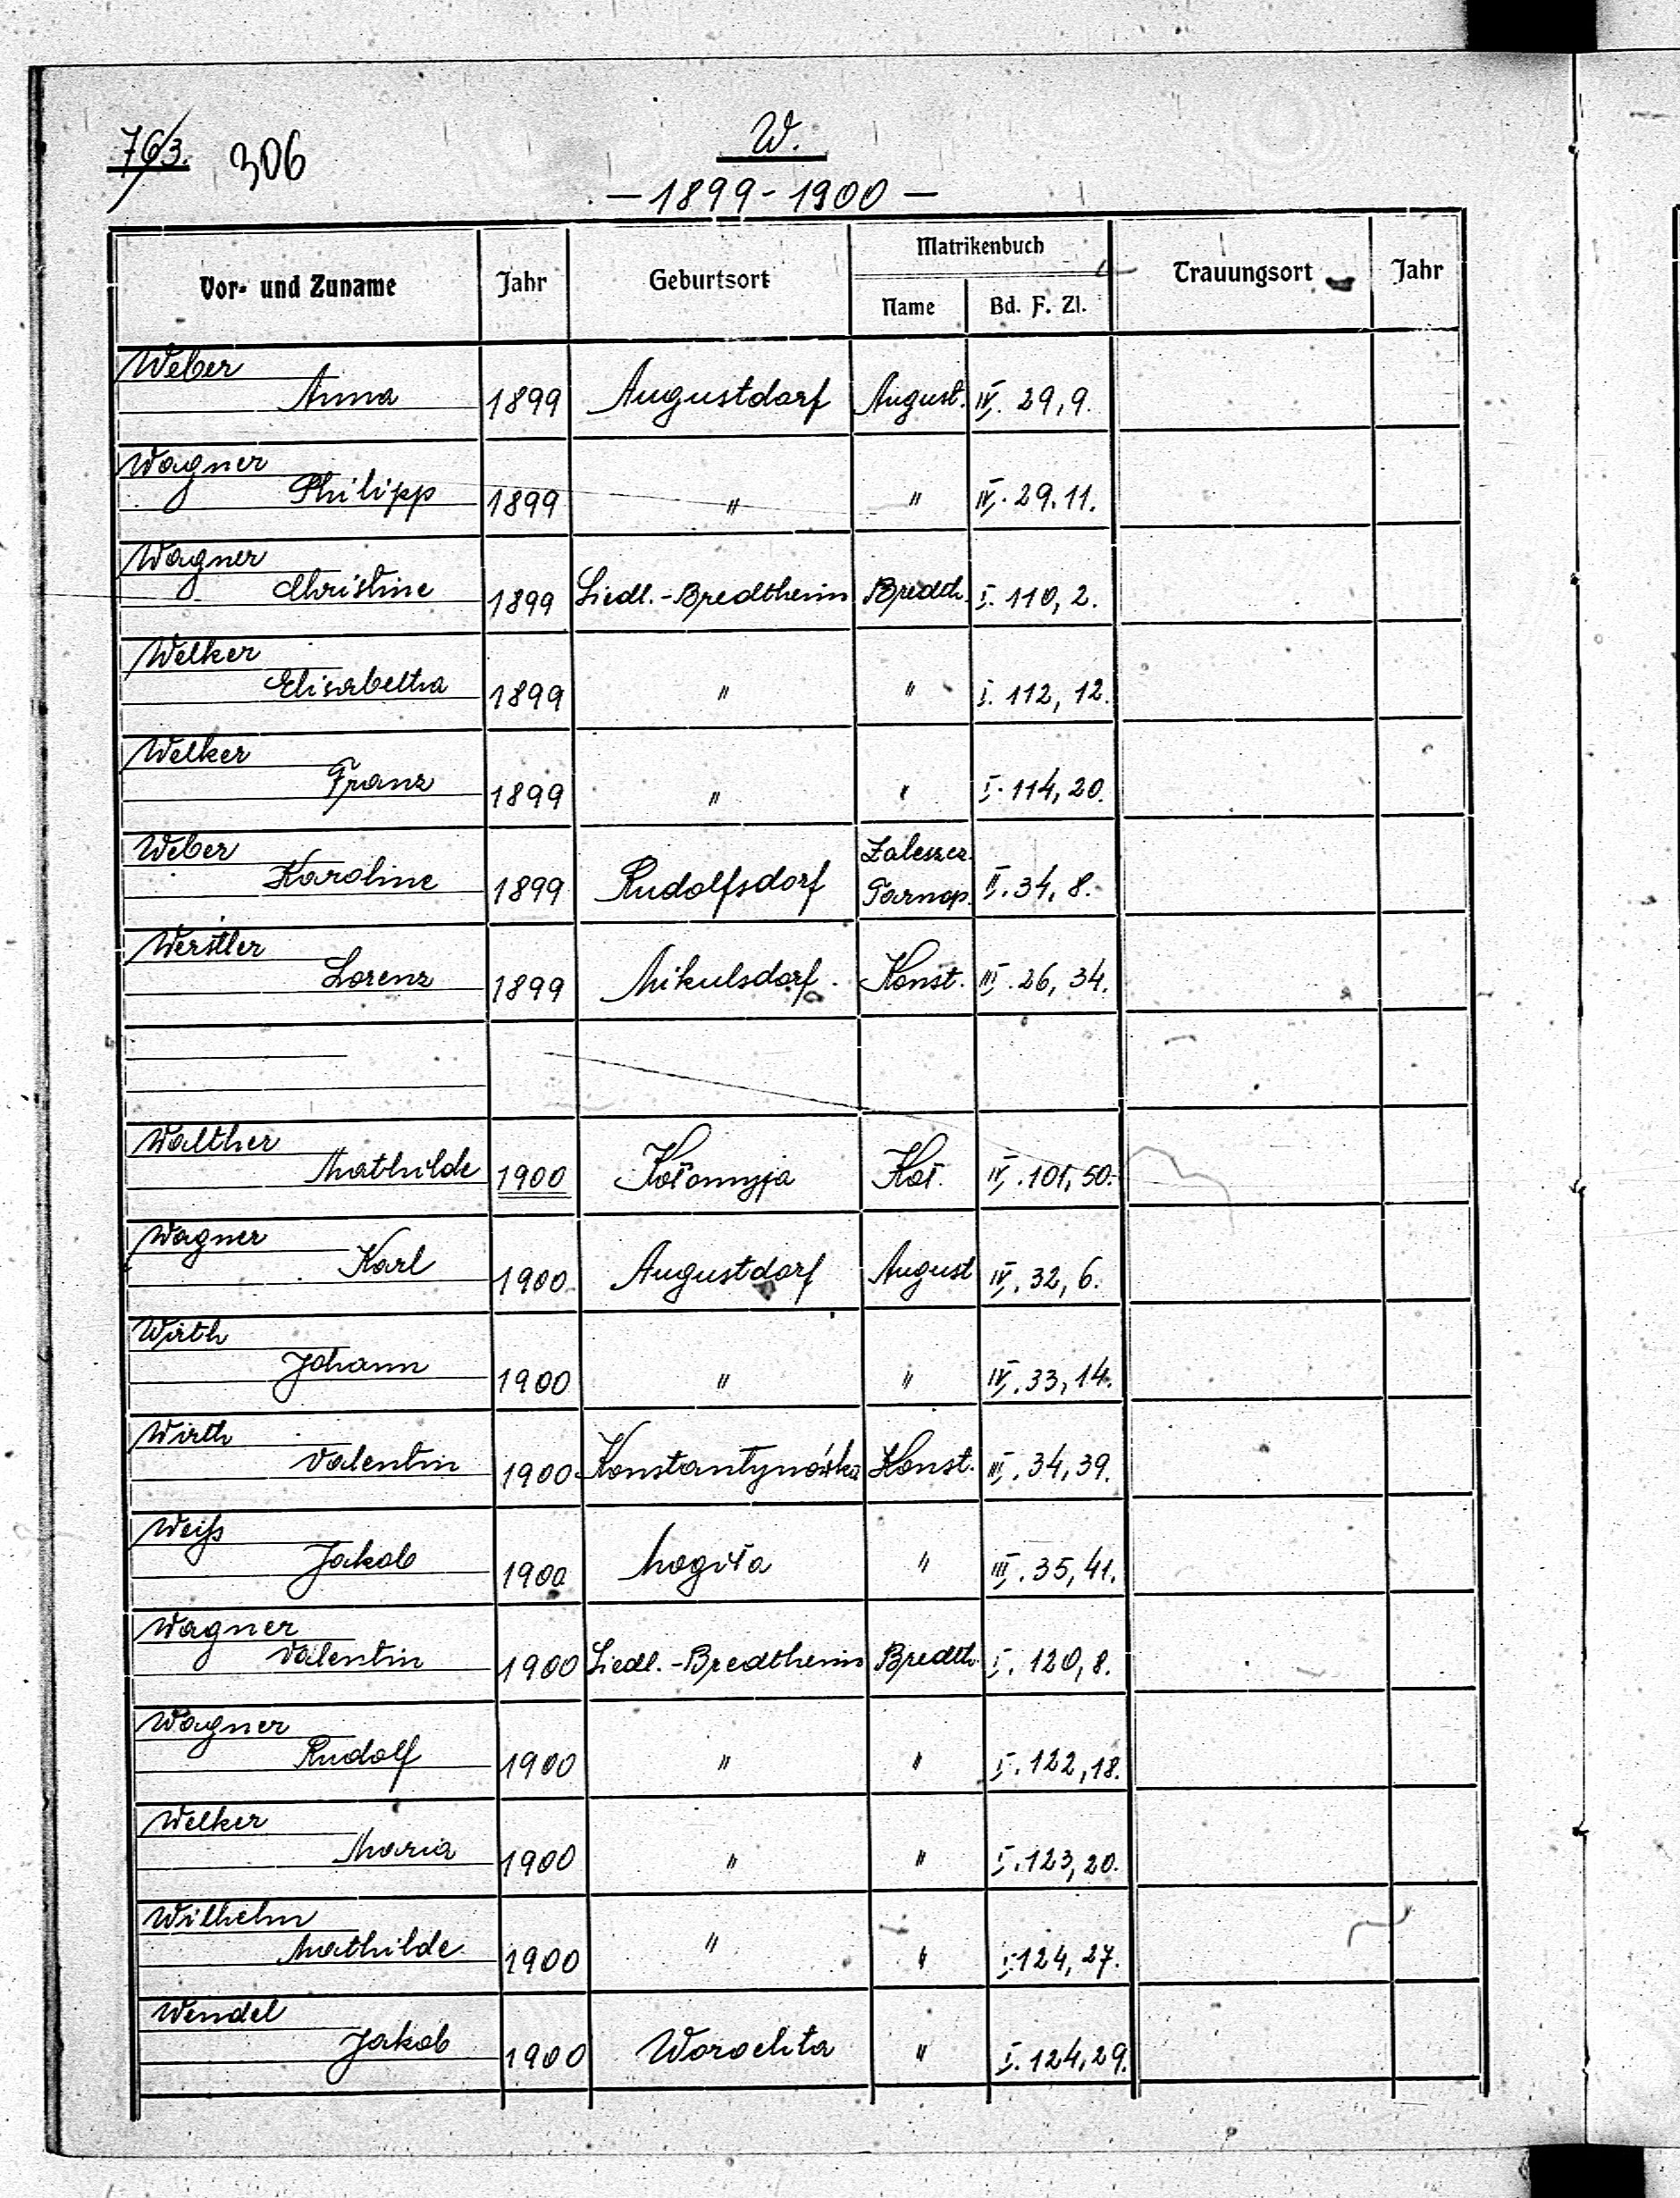 763. 306
W.
— 1899-1900 —
Vor- und Zuname Jahr Geburtsort Matrikenbuch Trauungsort Jahr
Name Bd. F. Zl.
Weber
Anna 1899 Augustdorf August. IV. 29, 9.
Wagner
Philipp 1899 " " IV. 29. 11.
Wagner
Christine 1899 Siedl.-Bredtheim Bredth. I. 110, 2.
Welker
Elisabetha 1899 " " I. 112, 12.
Welker
Franz 1899 " " I. 114, 20.
Weber Zaleszcz.
Karoline 1899 Rudolfsdorf Tarnop. II. 34, 8.
Werstler
Lorenz 1899 Mikulsdorf. Konst. III. 26, 34.
Walther
Mathilde 1900 Kołomyja Koł. IV. 101, 50.
Wagner
Karl 1900 Augustdorf August IV. 32, 6.
Wirth
Johann 1900 " " IV. 33, 14.
Wirth
Valentin 1900 Konstantynówka Konst. III. 34, 39.
Weiß
Jakob 1900 Mogiła " III. 35, 41.
Wagner
Valentin 1900 Siedl.-Bredtheim Bredth. I. 120, 8.
Wagner
Rudolf 1900 " " I. 122, 18.
Welker
Maria 1900 " " I. 123, 20.
Wilhelm
Mathilde 1900 " " I. 124, 27.
Wendel
Jakob 1900 Worochta " I. 124, 29.